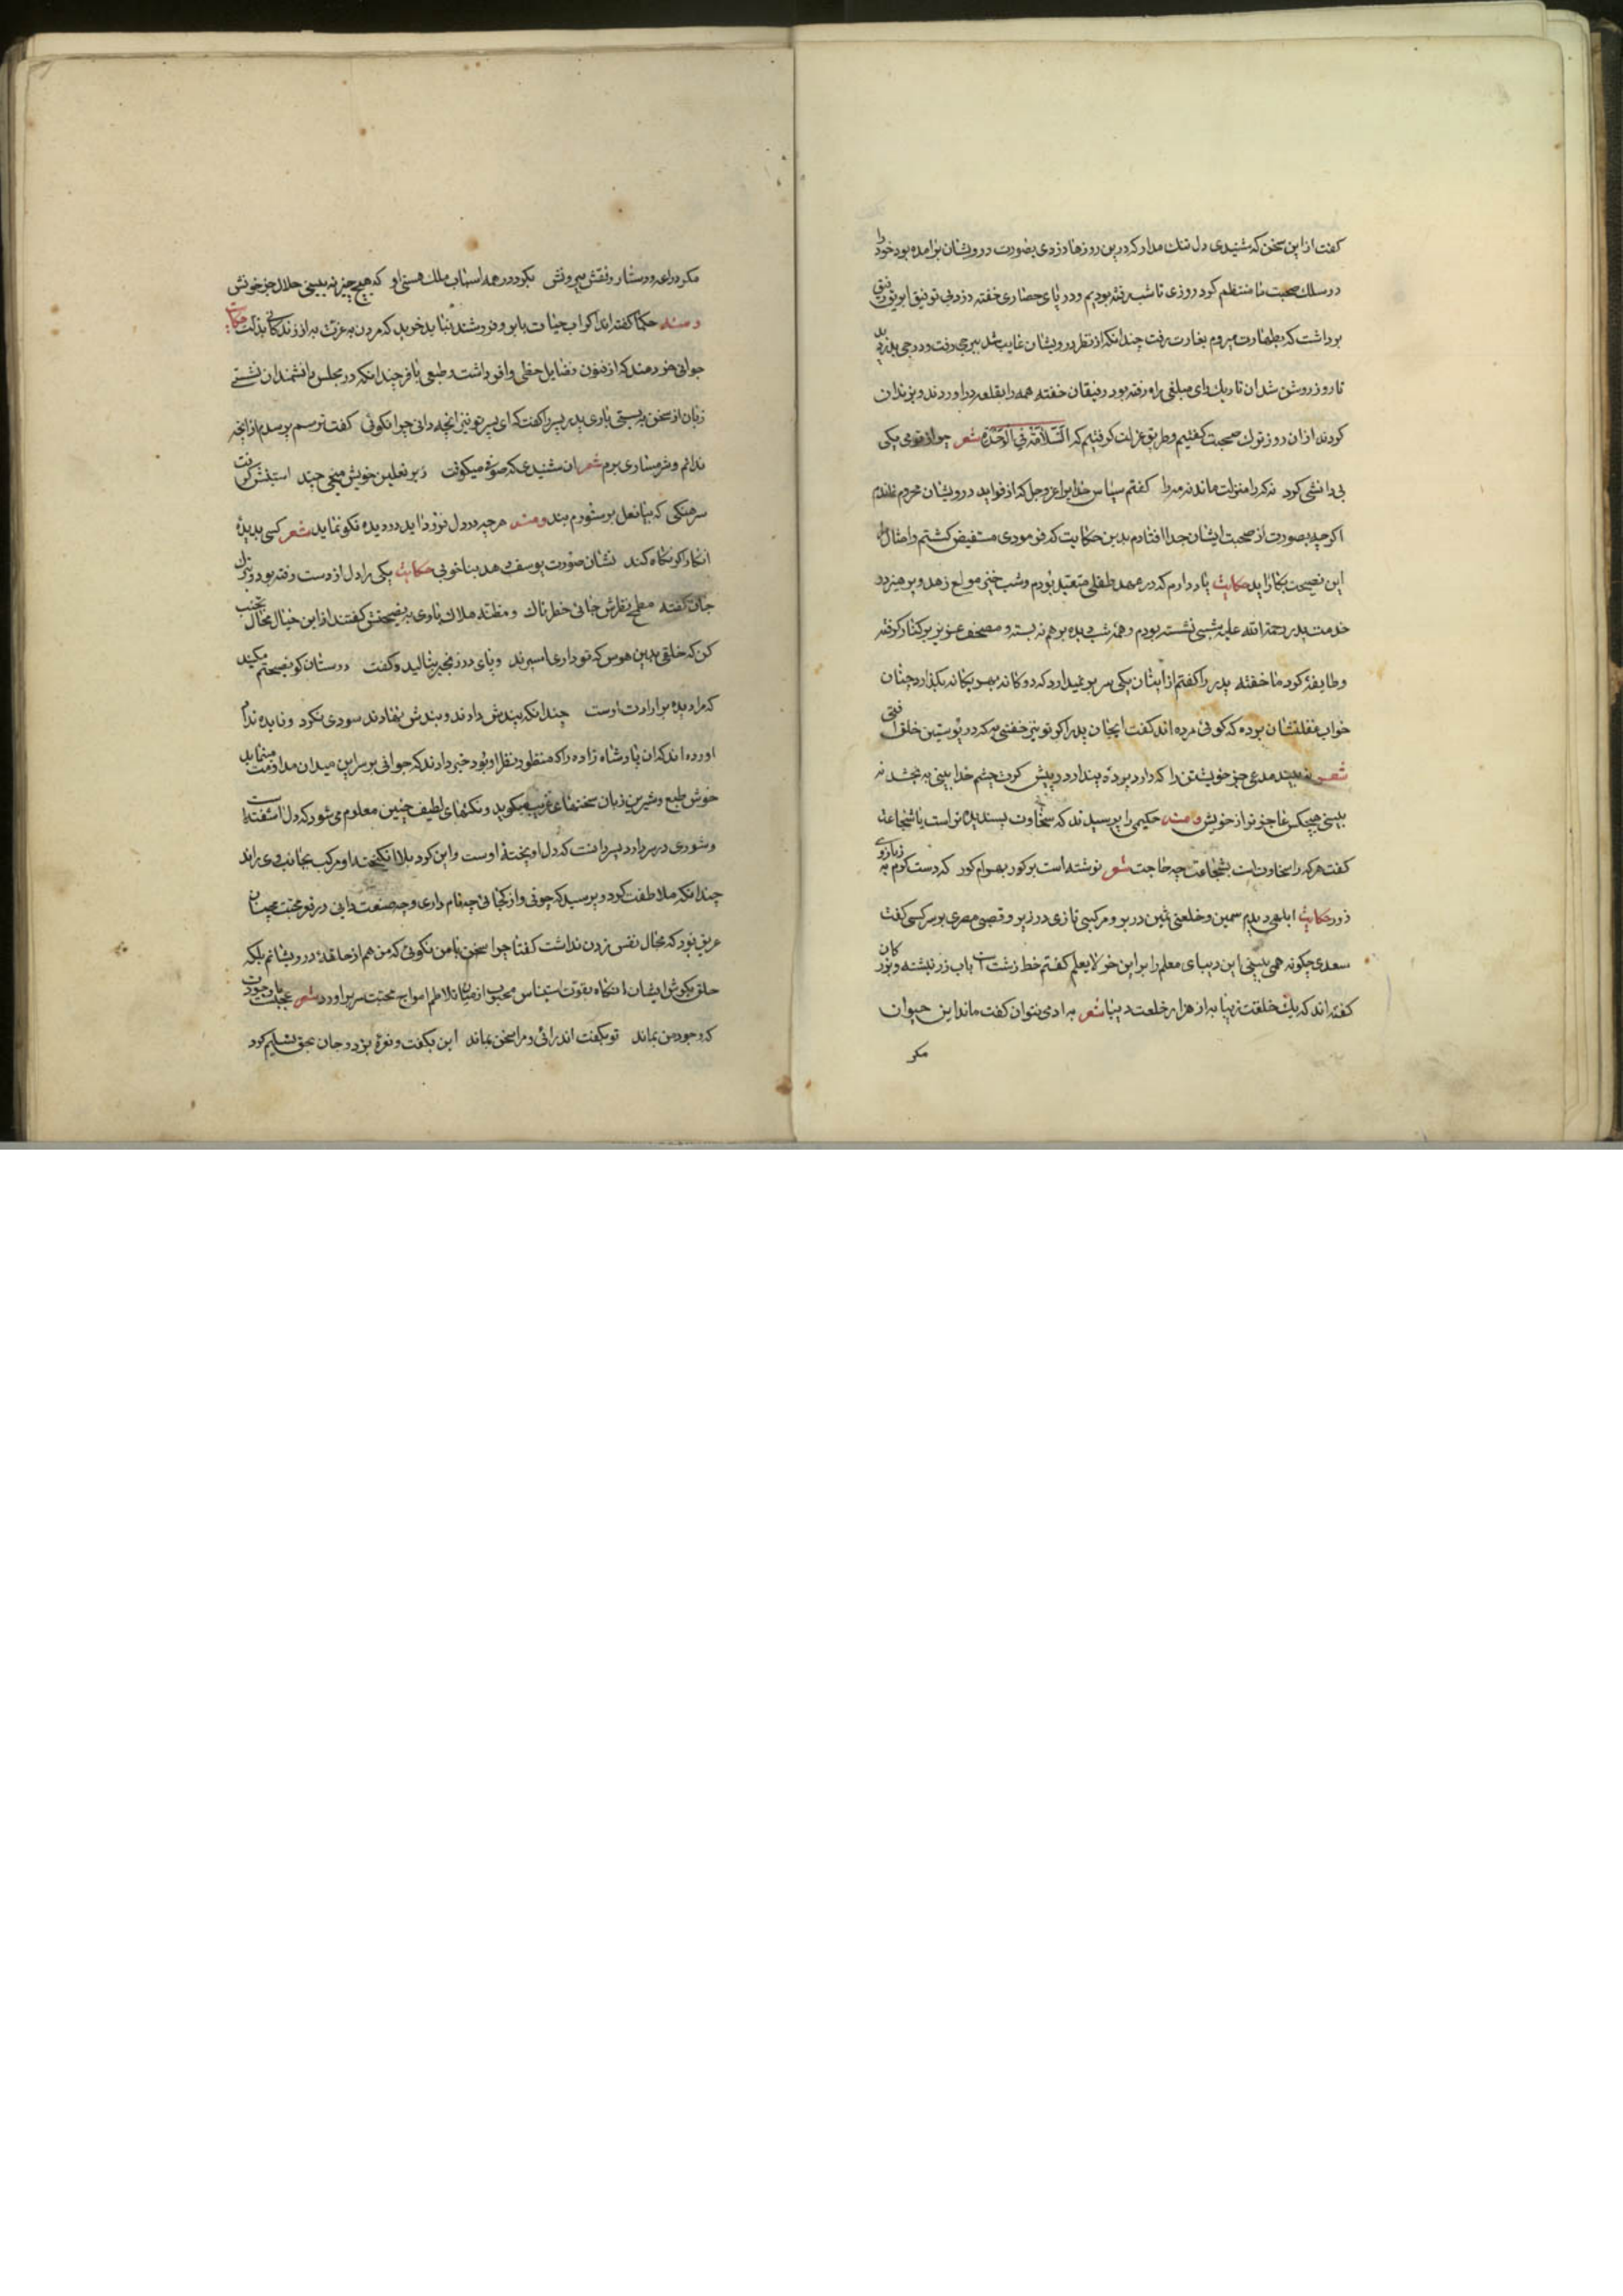 گفت ازاین سخن که شنیدی دل تنك مدار که درین روزها دزدی بصورت درویشان برامده بود خود را
در سلك صحبت ما منتظم کرد روزی تا شب رفته بودیم و در پای حصاری خفته دزد بی توفیق ابریق رفیق
برداشت که بطهارت میروم بغارت رفت چندانکه از نظر درویشان غایب شد ببرجی رفت و درجی بدزدید
تا روز روشن شد ان تاریك رای مبلغی راه رفته بود رفیقان خفته همه را بقلعه دراوردند و بزندان
کردند ازان روز ترك صحبت گفتیم و طریق عزلت گرفتیم که السَّلامَة فی الوَحْدَة شعر چو از قومی یکی
بی دانشی کرد نه که را منزلت ماند نه مه را گفتم سپاس خدایرا عزوجل که از فواید درویشان محروم نماندم
اگرچه بصورت از صحبت ایشان جدا افتادم بدین حکایت که فرمودی مستفیض گشتم و امثال را
این نصیحت بکار اید حکایت یاد دارم که در عهد طفلی متعبد بودم و شب خیز و مولع زهد و پرهیز در
خدمت پدر رحمة الله علیه شبی نشسته بودم و همه شب دیده بر هم نه بسته و مصحف عزیز بر کنار گرفته
و طایفۀ گرد ما خفته پدر را گفتم از اینان یکی سر برنمیدارد که دوگانه بهر یگانه بگذارد چنان
خواب غفلتشان برده که گوئی مرده اند گفت ایجان پدر اگر تو نیز خفتی به که در پوستین خلق افتی
شعر نه بیند مدعی جز خویشتن را که دارد پردۀ پندار در پیش گرت چشم خدا بینی به بخشد نه
بینی هیچکس عاجز تر از خویش و منه حکیمی را پرسیدند که سخاوت پسندیده تر است یا شجاعت
گفت هرکه را سخاوت است بشجاعت چه حاجت شعر نوشته است بر گور بهرام گور که دست کرم به ز بازوی
زور حکایت ابلهی دیدم سمین و خلعتی ثمین در بر و مرکبی تازی در زیر و قصبی مصری بر سر کسی گفت
سعدی چگونه همی بینی این دیبای معلم را بر این خر لایعلم گفتم خط زشت است باب زر نبشته و بزرکان
گفته اند که یك خلقت زیبا به از هزار خلعت دیبا شعر به ادمی نتوان گفت ماند این حیوان
مکر
مکر دراعه و دستار و نقش بیرونش بگرد در همه اسباب ملك هستی او که هیچ چیز نه بینی حلال جز خونش
و منه حکما گفته اند اگر اب حیات بابرو فروشند نباید خرید که مردن به عزت به از زندگانی بذلت حکایت
جوانی خردمند که از فنون فضایل حظی وافر داشت و طبعی نافر چندانکه در مجلس دانشمندان نشستی
زبان از سخن به بستی باری پدر پسر را گفت که ای پسر تو نیز انچه دانی چرا نگوئی گفت ترسم پرسندم از انچه
ندانم و شرمساری برم شعر ان شنیدی که صوفی میکوفت زیر نعلین خویش میخی چند استینش گرفت
سرهنگی که بیا نعل بر ستورم بند و منه هرچه در دل فرود اید در دیده نکو نماید شعر کسی بدیدۀ
انکار گر نگاه کند نشان صورت یوسف دهد بناخوبی حکایت یکی را دل از دست رفته بود و ترك
جان گفته مطمح نظرش جائی خطرناك و مظنه هلاك باری به نصیحتش گفتند از این خیال محال تجنب
کن که خلقی بدین هوس که تو داری اسیرند و پای در زنجیر بنالید و گفت دوستان گو نصیحتم مکنید
که مرا دیده بر ارادت اوست چندانکه پندش دادند و بندش نهادند سودی نکرد و فایده نداد
اورده اند که ان پادشاه زاده را که منظور نظر او بود خبر دادند که جوانی بر سر این میدان مداومت مینماید
خوش طبع و شیرین زبان سخنهای غریب میگوید و نکتهای لطیف چنین معلوم می شود که دل اشفته است
و شوری در سر دارد پسر دانست که دل اویختۀ اوست و این گرد بلا انگیخته او مرکب بجانب وی راند
چندانکه ملاطفت کرد و پرسید که چونی و از کجائی چه نام داری و چه صنعت دانی در قعر محبت چنان
غریق بود که مجال نفس زدن نداشت گفتا چرا سخن با من نگوئی که من هم از حلقۀ درویشانم بلکه
حلقه بگوش ایشان انگاه بقوت استیناس محبوب از میان تلاطم امواج محبت سر براورد شعر عجبست با وجودت
که وجود من بماند تو بگفت اندر ائی و مرا سخن بماند این بگفت و نعرۀ بزد و جان بحق تسلیم کرد